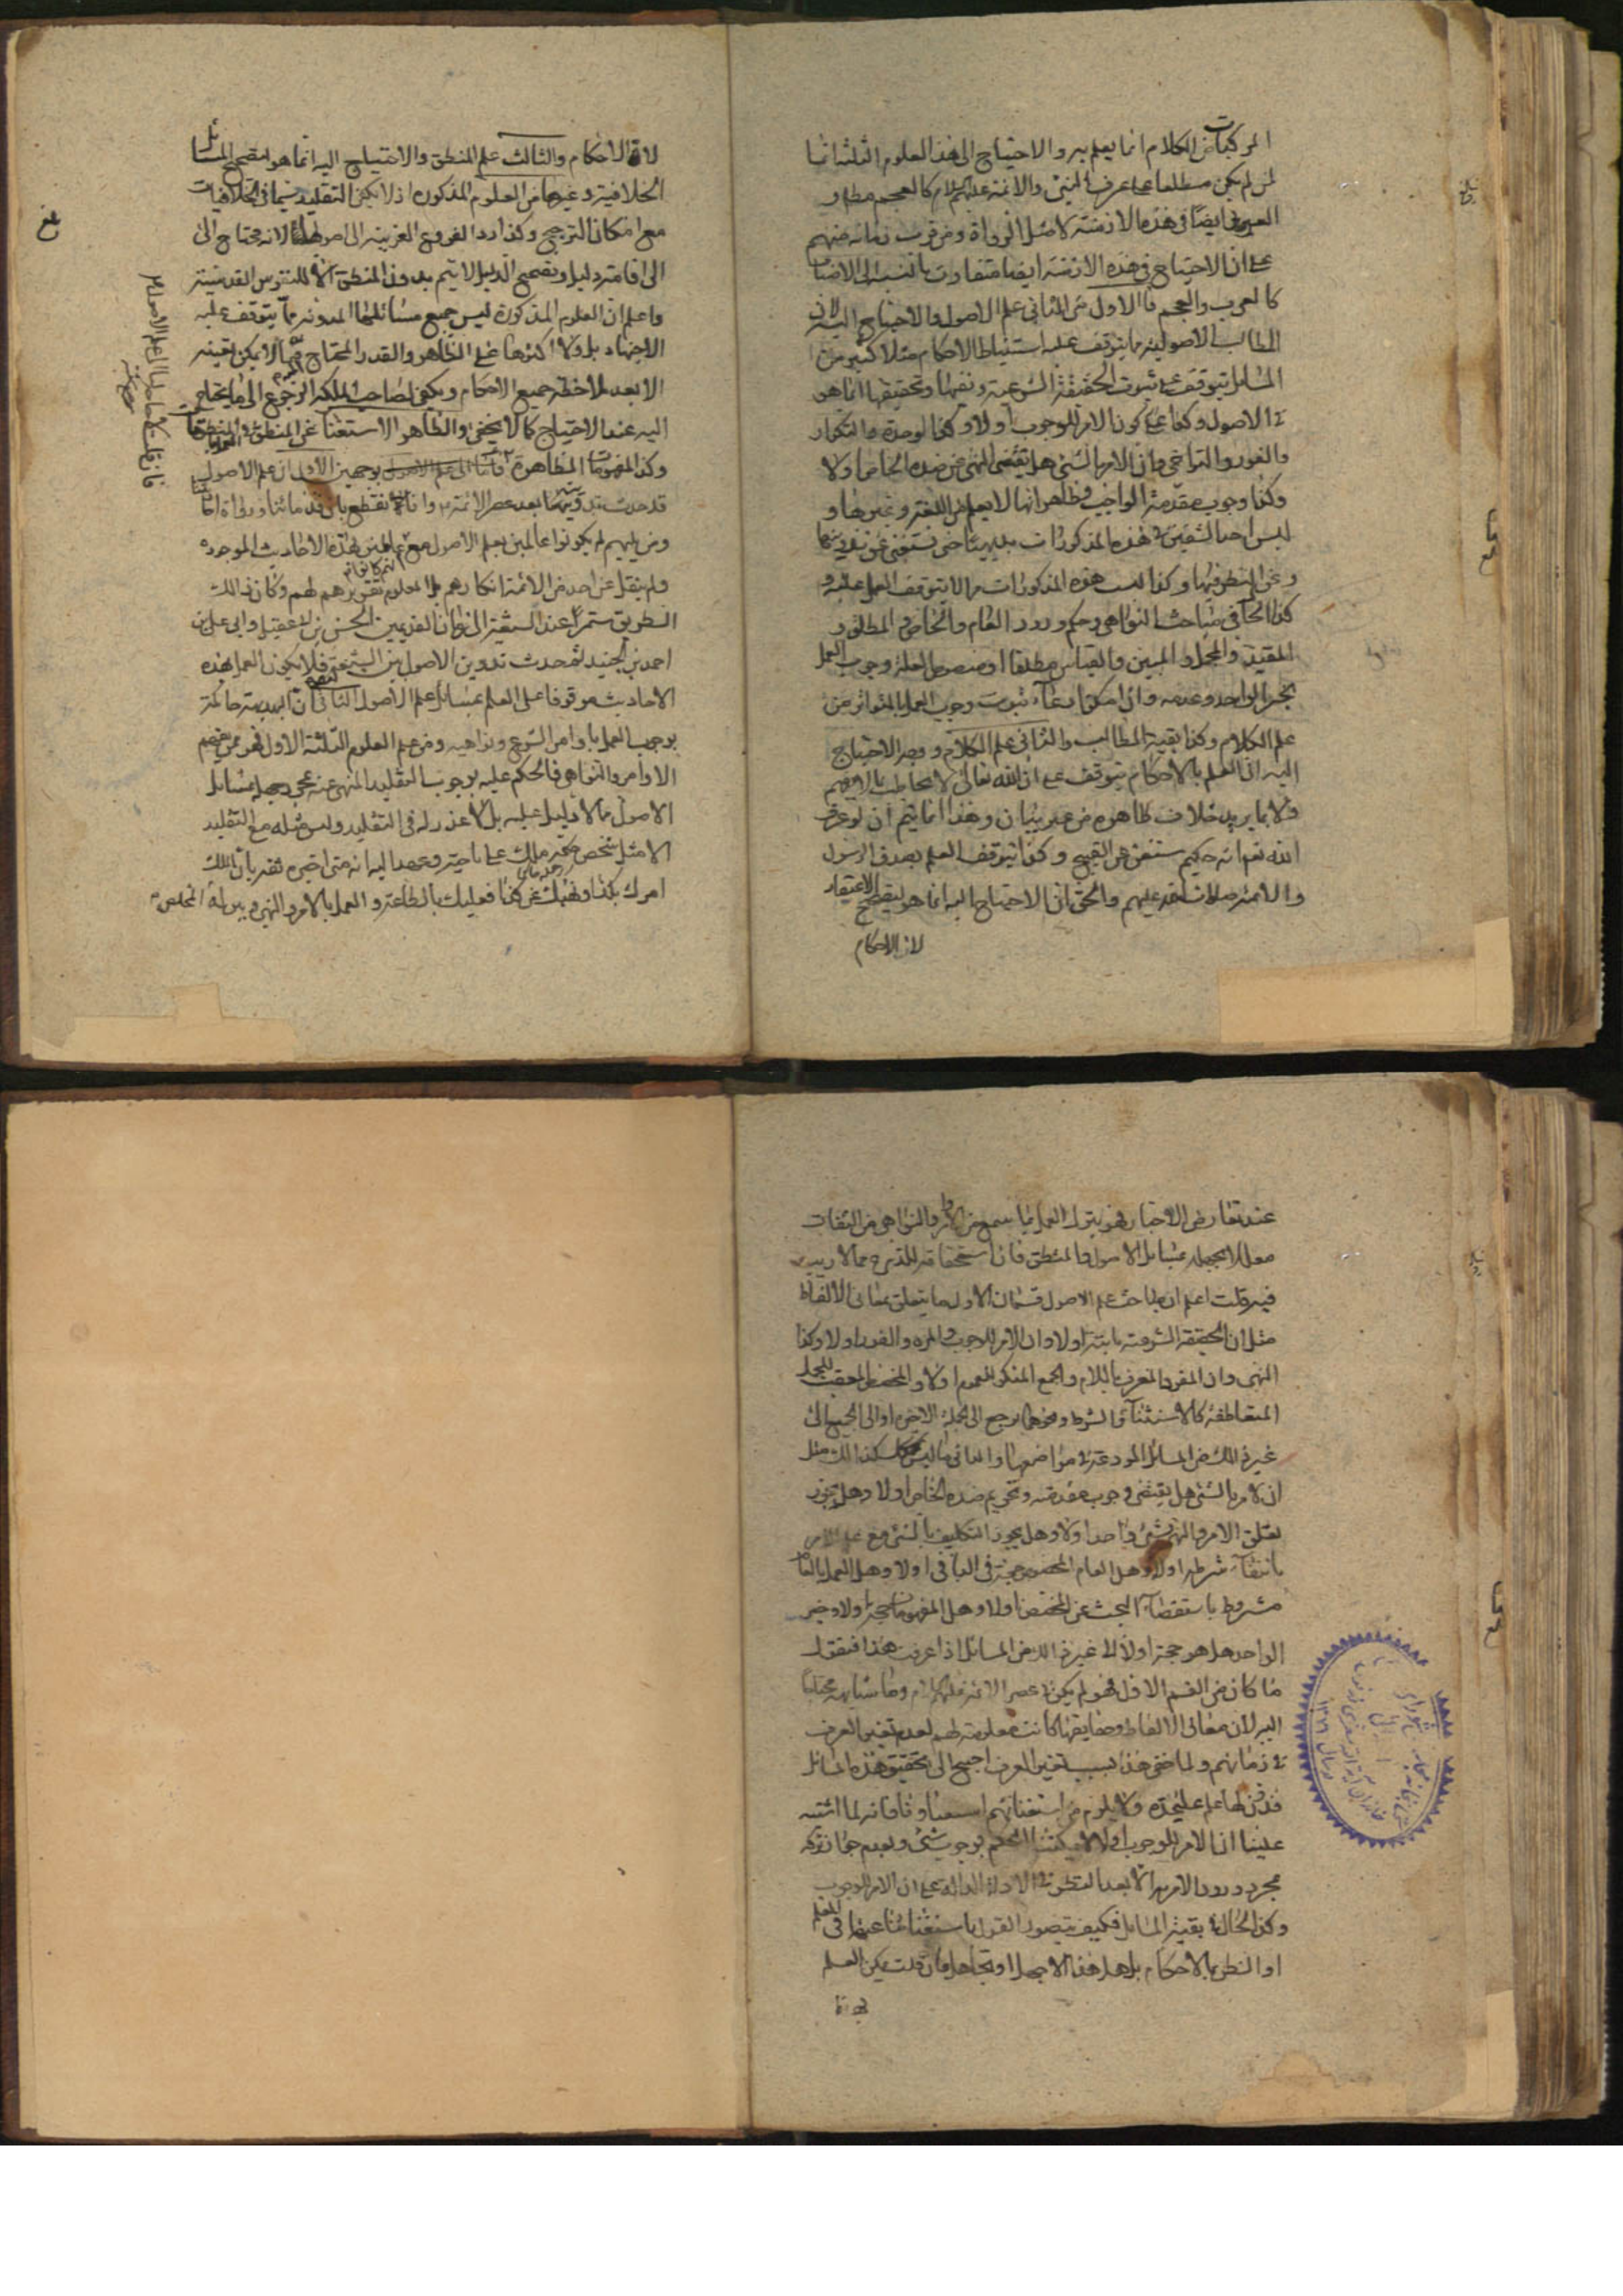 المركبات من الكلام انما يعلم به والاحتياج الى هذه العلوم الثلثة انما
لمن لم يكن مطلعا على عرف النبي والائمة عليهم السلام كالعجم مطلقا و
العرب ايضا في هذه الازمنة لا مثل الرواة ومن قرب زمانه منهم
على ان الاحتياج في هذه الازمنة ايضا متفاوت بالنسبة الى الاصناف
كالعرب والعجم فالاول من الثاني علم الاصول والاحتياج اليه لان
المطالب الاصولية مما يتوقف عليه استنباط الاحكام مثلا كثير من
المسائل يتوقف على ثبوت الحقيقة الشرعية ونفيها وتحقيقها انما هو
في الاصول وكذا على كون الامر للوجوب او لا وكذا الوحدة والتكرار
والفور والتراخي وان الامر بالشئ هل يقتضي النهي عن ضده الخاص او لا
وكذا وجوب مقدمة الواجب وظاهر انها لا يعلم من اللغة وغيرها و
ليس احد الشقين في هذه المذكورات بديهيا حتى يستغنى عن تدوينها
وعن النظر فيها وكذا ليست هذه المذكورات مما لا يتوقف العمل عليه و
كذا الحال في مباحث النواهي وحكم ورود العام والخاص والمطلق و
المقيد والمجمل والمبين والقياس مطلقا او منصوص العلة ووجوب العمل
بخبر الواحد وعدمه وان امكن ادعاء ثبوت وجوب العمل بالمتواتر من
علم الكلام وكذا بقية المطالب والثاني علم الكلام ووجه الاحتياج
اليه ان العلم بالاحكام يتوقف على ان الله تعالى لا يخاطب بما لا يفهم
ولا بما يريد خلاف ظاهره من غير بيان وهذا انما يتم ان لو عرف
الله تعالى انه حكيم مستغن عن القبيح وكذا يتوقف العلم بصدق الرسول
والائمة صلوات الله عليهم والحق ان الاحتياج اليه انما هو لتصحيح الاعتقاد
لا ان الاحكام
لا ان الاحكام والثالث علم المنطق والاحتياج اليه انما هو لتصحيح المسائل
الخلافية وغيرها من العلوم المذكورة اذ لا يكفي التقليد سيما في الخلافيات
مع امكان الترجيح وكذا رد الفروع الغريبة الى اصولها لانه محتاج الى
الى اقامة دليل وتصحيح الدليل لا يتم بدون المنطق الا للنفوس القدسية
واعلم ان العلوم المذكورة ليس جميع مسائلها المدونة مما يتوقف عليه
الاجتهاد بل ولا اكثرها على الظاهر والقدر المحتاج اليه مما لا يمكن تعيينه
الا بعد ملاحظة جميع الاحكام ويكفي لصاحب الملكة الرجوع الى ما يحتاج
اليه عند الاحتياج كما لا يخفى والظاهر الاستغناء عن المنطق
وكذا المفهومات الظاهرة بوجهين الاول ان علم الاصول
قد حدث تدوينها بعد عصر الائمة وانا نقطع بان قدمائنا ورواة احاديثنا
ومن يليهم لم يكونوا عالمين بعلم الاصول مع انهم كانوا عالمين بهذه الاحاديث الموجودة
ولم ينقل عن احد من الائمة انكارهم بل المعلوم تقريرهم لهم وكان ذلك
الطريق مستمرا عند الشيعة الى زمان القديمين الحسن بن ابي عقيل وابي علي بن
احمد بن الجنيد ثم حدث تدوين الاصول بين الشيعة فلا يكون العمل بهذه
الاحاديث موقوفا على العلم بمسائل علم الاصول الثاني ان البديهة حاكمة
بوجوب العمل باوامر الشرع ونواهيه ومن علم العلوم الثلثة الاول فهو ممن يفهم
الاوامر والنواهي فالحكم عليه بوجوب التقليد المنهي عنه بمجرد جهله بمسائل
الاصول مما لا دليل عليه بل لا عذر له في التقليد وليس مثله مع التقليد
الا مثل شخص حكمه ملك على ناحية وعهد اليه انه متى اخبره ثقة بان الملك
امرك بكذا ونهاك عن كذا فعليك بالطاعة والعمل بالامر والنهي وبين له المخلص
فان قلت لا حاجة لنا الى علم الاصول
بلغ
عند تعارض الاخبار فهو يترك العمل بما سمع من الاوامر والنواهي من الثقات
معللا بجهله بمسائل الاصول والمنطق فان استحقاقه للذم مما لا ريب
فيه قلت اعلم ان مباحث علم الاصول قسمان الاول ما يتعلق بمعاني الالفاظ
مثل ان الحقيقة الشرعية ثابتة او لا وان الامر للوجوب والمرة والفور او لا وكذا
النهي وان المفرد المعرف باللام والجمع المنكر للعموم او لا والمخصص المتعقب للجمل
المتعاطفة كالاستثناء والشرط ونحوهما يرجع الى الجملة الاخيرة او الى الجميع الى
غير ذلك من المسائل المودعة في مواضعها والثاني ما ليس كذلك مثل
ان الامر بالشئ هل يقتضي وجوب مقدمته وتحريم ضده الخاص او لا وهل يجوز
تعلق الامر والنهي بشئ واحد او لا وهل يجوز التكليف بالشئ مع علم الامر
بانتفاء شرطه او لا وهل العام المخصص حجة في الباقي او لا وهل العمل بالعام
مشروط باستقصاء البحث عن المخصص او لا وهل المفهومات حجة او لا وخبر
الواحد هل هو حجة او لا الى غير ذلك من المسائل اذا عرفت هذا فنقول
ما كان من القسم الاول فهو لم يكن في عصر الائمة عليهم السلام وما شابهه محتاجا
اليه لان معاني الالفاظ وحقايقها كانت معلومة لهم لعدم تغير العرف
في زمانهم ولما خفي هذا بسبب تغير العرف احتيج الى تحقيق هذه المسائل
فدون لها علم عليحدة ولا يلزم من استغنائهم استغناؤنا فانه لما اشتبه
علينا ان الامر للوجوب او لا لا يمكننا الحكم بوجوب شئ وبعدم جواز تركه
بمجرد ورود الامر به الا بعد النظر في الادلة الدالة على ان الامر للوجوب
وكذا الحال في بقية المسائل فكيف يتصور القول باستغنائنا عنها في العلم
او الظن بالاحكام بل هل هذا الا جهل او تجاهل فان قلت يمكن العلم